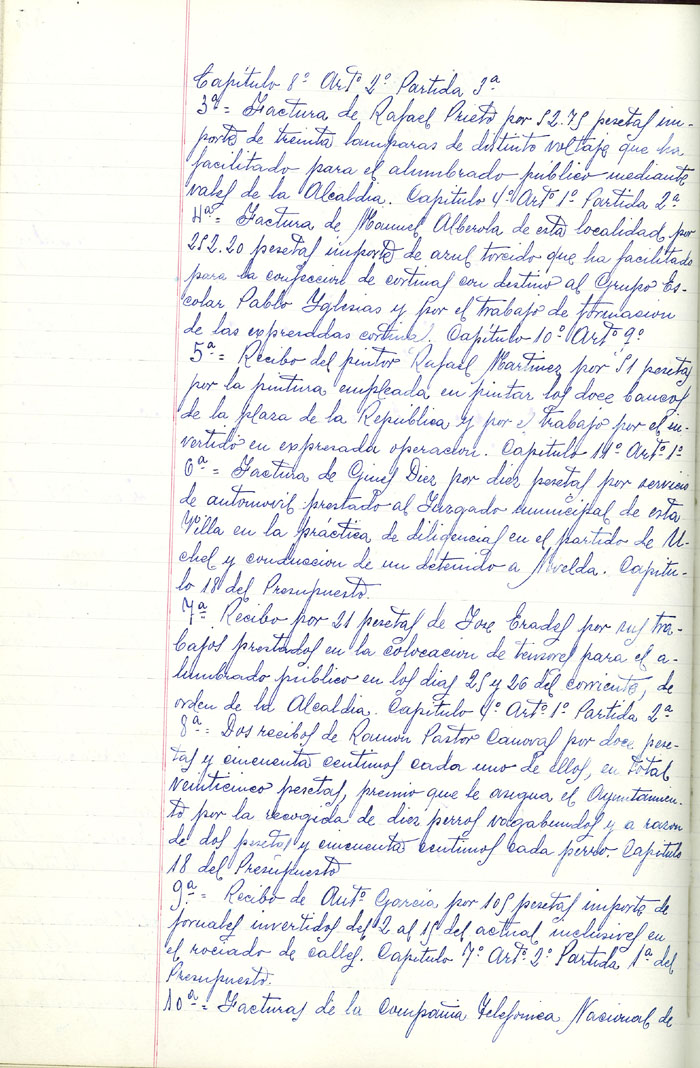 Capítulo 8º Artº 2º Partida 3ª
3ª= Factura de Rafael Prieto por 52.75 pesetas im-
porte de treinta lamparas de distinto voltaje que ha
facilitado para el alumbrado público mediante
vales de la Alcaldia. Capitulo 4º Artº 1º Partida 2ª
4ª= Factura de Manuel Alberola de esta localidad, por
252.20 pesetas importe de azul torcido que ha facilitado
para la confeccion de cortinas con destino al Grupo Es-
colar Pablo Yglesias y por el trabajo de formacion
de las expresadas cortinas. Capitulo 10º Artº 9º
5ª= Recibo del pintor Rafael Martinez por 51 pesetas
por la pintura empleada en pintar los doce bancos
de la plaza de la República y por el trabajo por el in-
vertido en expresada operacion. Capitulo 11º Artº 1º
6ª= Factura de Gines Diez por diez pesetas por servicio
de automovil prestado al Juzgado municipal de esta
Villa en la práctica de diligencias en el partido de U-
chel y conduccion de un detenido a Novelda. Capitu-
lo 18 del Presupuesto.
7ª Recibo por 21 pesetas de Jose Erades por sus tra-
bajos prestados en la colocacion de tensores para el a-
lumbrado público en los dias 25 y 26 del corriente, de
orden de la Alcaldia. Capitulo 4º Artº 1º Partida 2ª
8ª= Dos recibos de Ramon Pastor Canovas por doce pese-
tas y cincuenta centimos cada uno de ellos, en total
veinticinco pesetas, premio que le asigna el Ayuntamien-
to por la recogida de diez perros vagabundos y a razon
de dos pesetas y cincuenta centimos cada perro. Capitulo
18 del Presupuesto
9ª= Recibo de Antº Garcia por 105 pesetas importe de
jornales invertidos del 2 al 15 del actual inclusives en
el rociado de calles. Capitulo 7º Artº 2º Partida 1ª del
Presupuesto.
10ª= Facturas de la Compañia Telefonica Nacional de